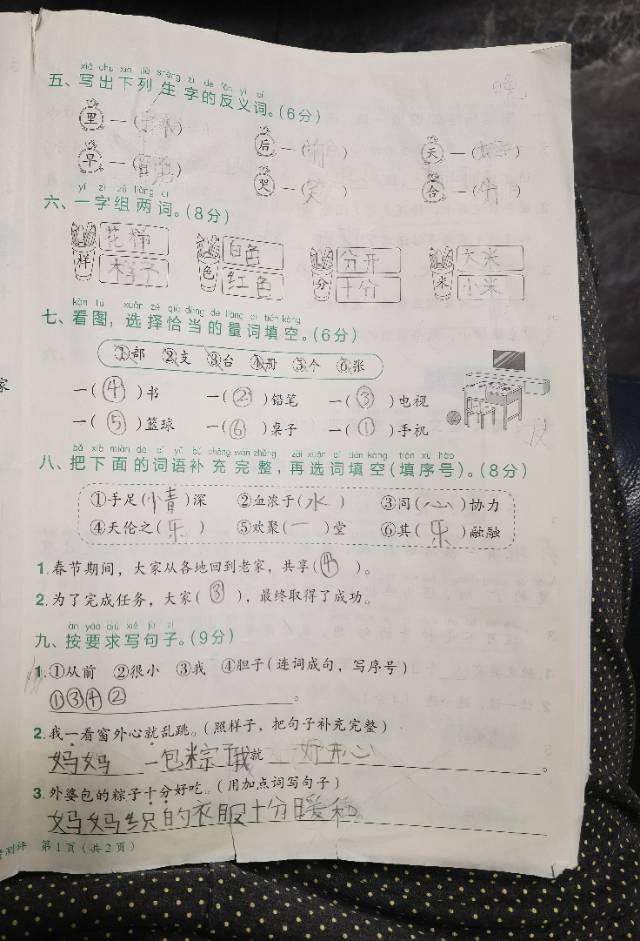 xiě chū xià liè shēng zì de fǎn yì cí
五、写出下列生字的反义词。(6分)
里—( ) 后—(前) 天—( )
早—( ) 哭—(笑) 合—( )
yí zì zǔ liǎng cí
六、一字组两词。(8分)
样 花样 色 白色 分 分开 米 大米
样子 红色 十分 小米
kàn tú xuǎn zé qià dàng de liàng cí tián kòng
七、看图,选择恰当的量词填空。(6分)
①部 ②支 ③台 ④册 ⑤个 ⑥张
一(④)书 一(②)铅笔 一(③)电视
一(⑤)篮球 一(⑥)桌子 一(①)手机
bǎ xià miàn de cí yǔ bǔ chōng wán zhěng zài xuǎn cí tián kòng tián xù hào
八、把下面的词语补充完整,再选词填空(填序号)。(8分)
①手足(情)深 ②血浓于(水) ③同(心)协力
④天伦之(乐) ⑤欢聚(一)堂 ⑥其(乐)融融
1.春节期间,大家从各地回到老家,共享(④)。
2.为了完成任务,大家(③),最终取得了成功。
àn yāo qiú xiě jù zi
九、按要求写句子。(9分)
1.①从前 ②很小 ③我 ④胆子(连词成句,写序号)
①③④②。
2.我一看窗外心就乱跳。(照样子,把句子补充完整)
妈妈一包粽我就好开心。
3.外婆包的粽子十分好吃。(用加点词写句子)
妈妈织的衣服十分暖和
测评 第1页(共2页)